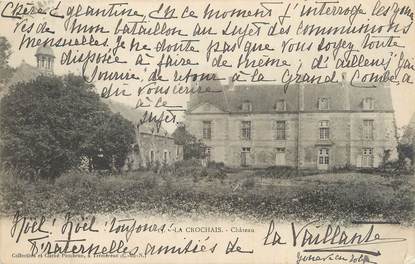 Chère Eglantine, En ce moment j'interroge les jeu-
nes de mon bataillon au sujet des communions
mensuelles. Je ne doute pas que vous soyez toute
disposée à faire de même; d'ailleurs j'ai
de retour à la Grand Combe a
dû vous écrire
à ce
sujet.
LA CROCHAIS. - Château
Noël! Noël! toujours!
Fraternelles amitiés de la Vaillante
Collection et Cliché